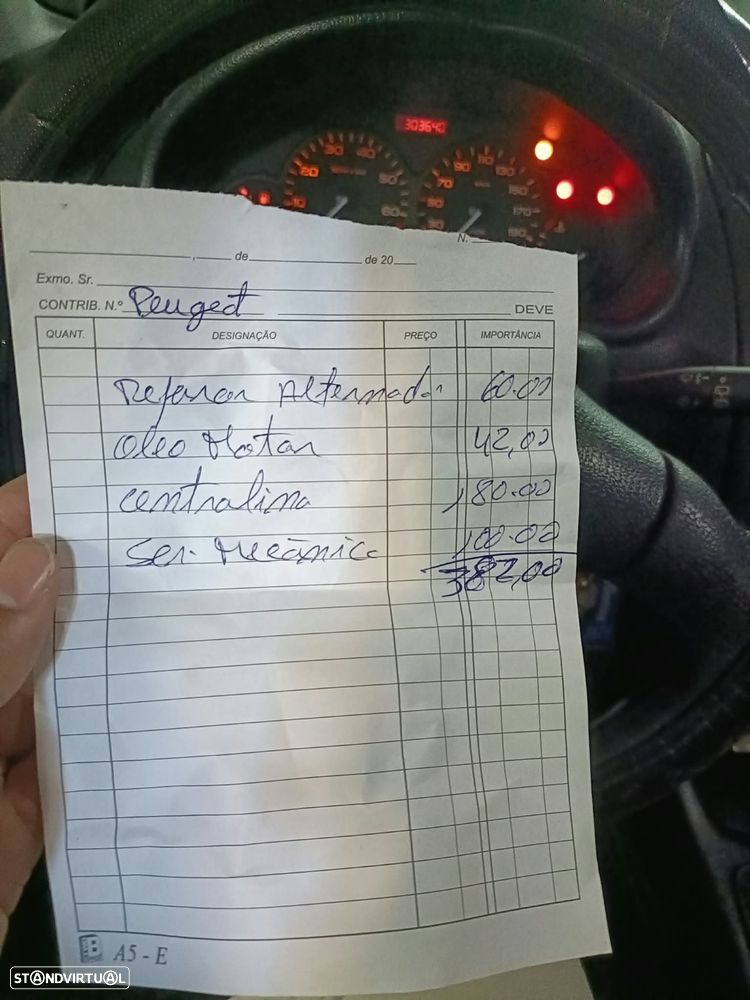 303640
N.
, de de 20
Exmo. Sr.
CONTRIB. N.º Peugeot DEVE
QUANT. DESIGNAÇÃO PREÇO IMPORTÂNCIA
Reparar Alternador 60.00
Oleo Motor 42,00
Centralina 180.00
Ser. Mecânica 100.00
382,00
B A5 - E
STANDVIRTUAL